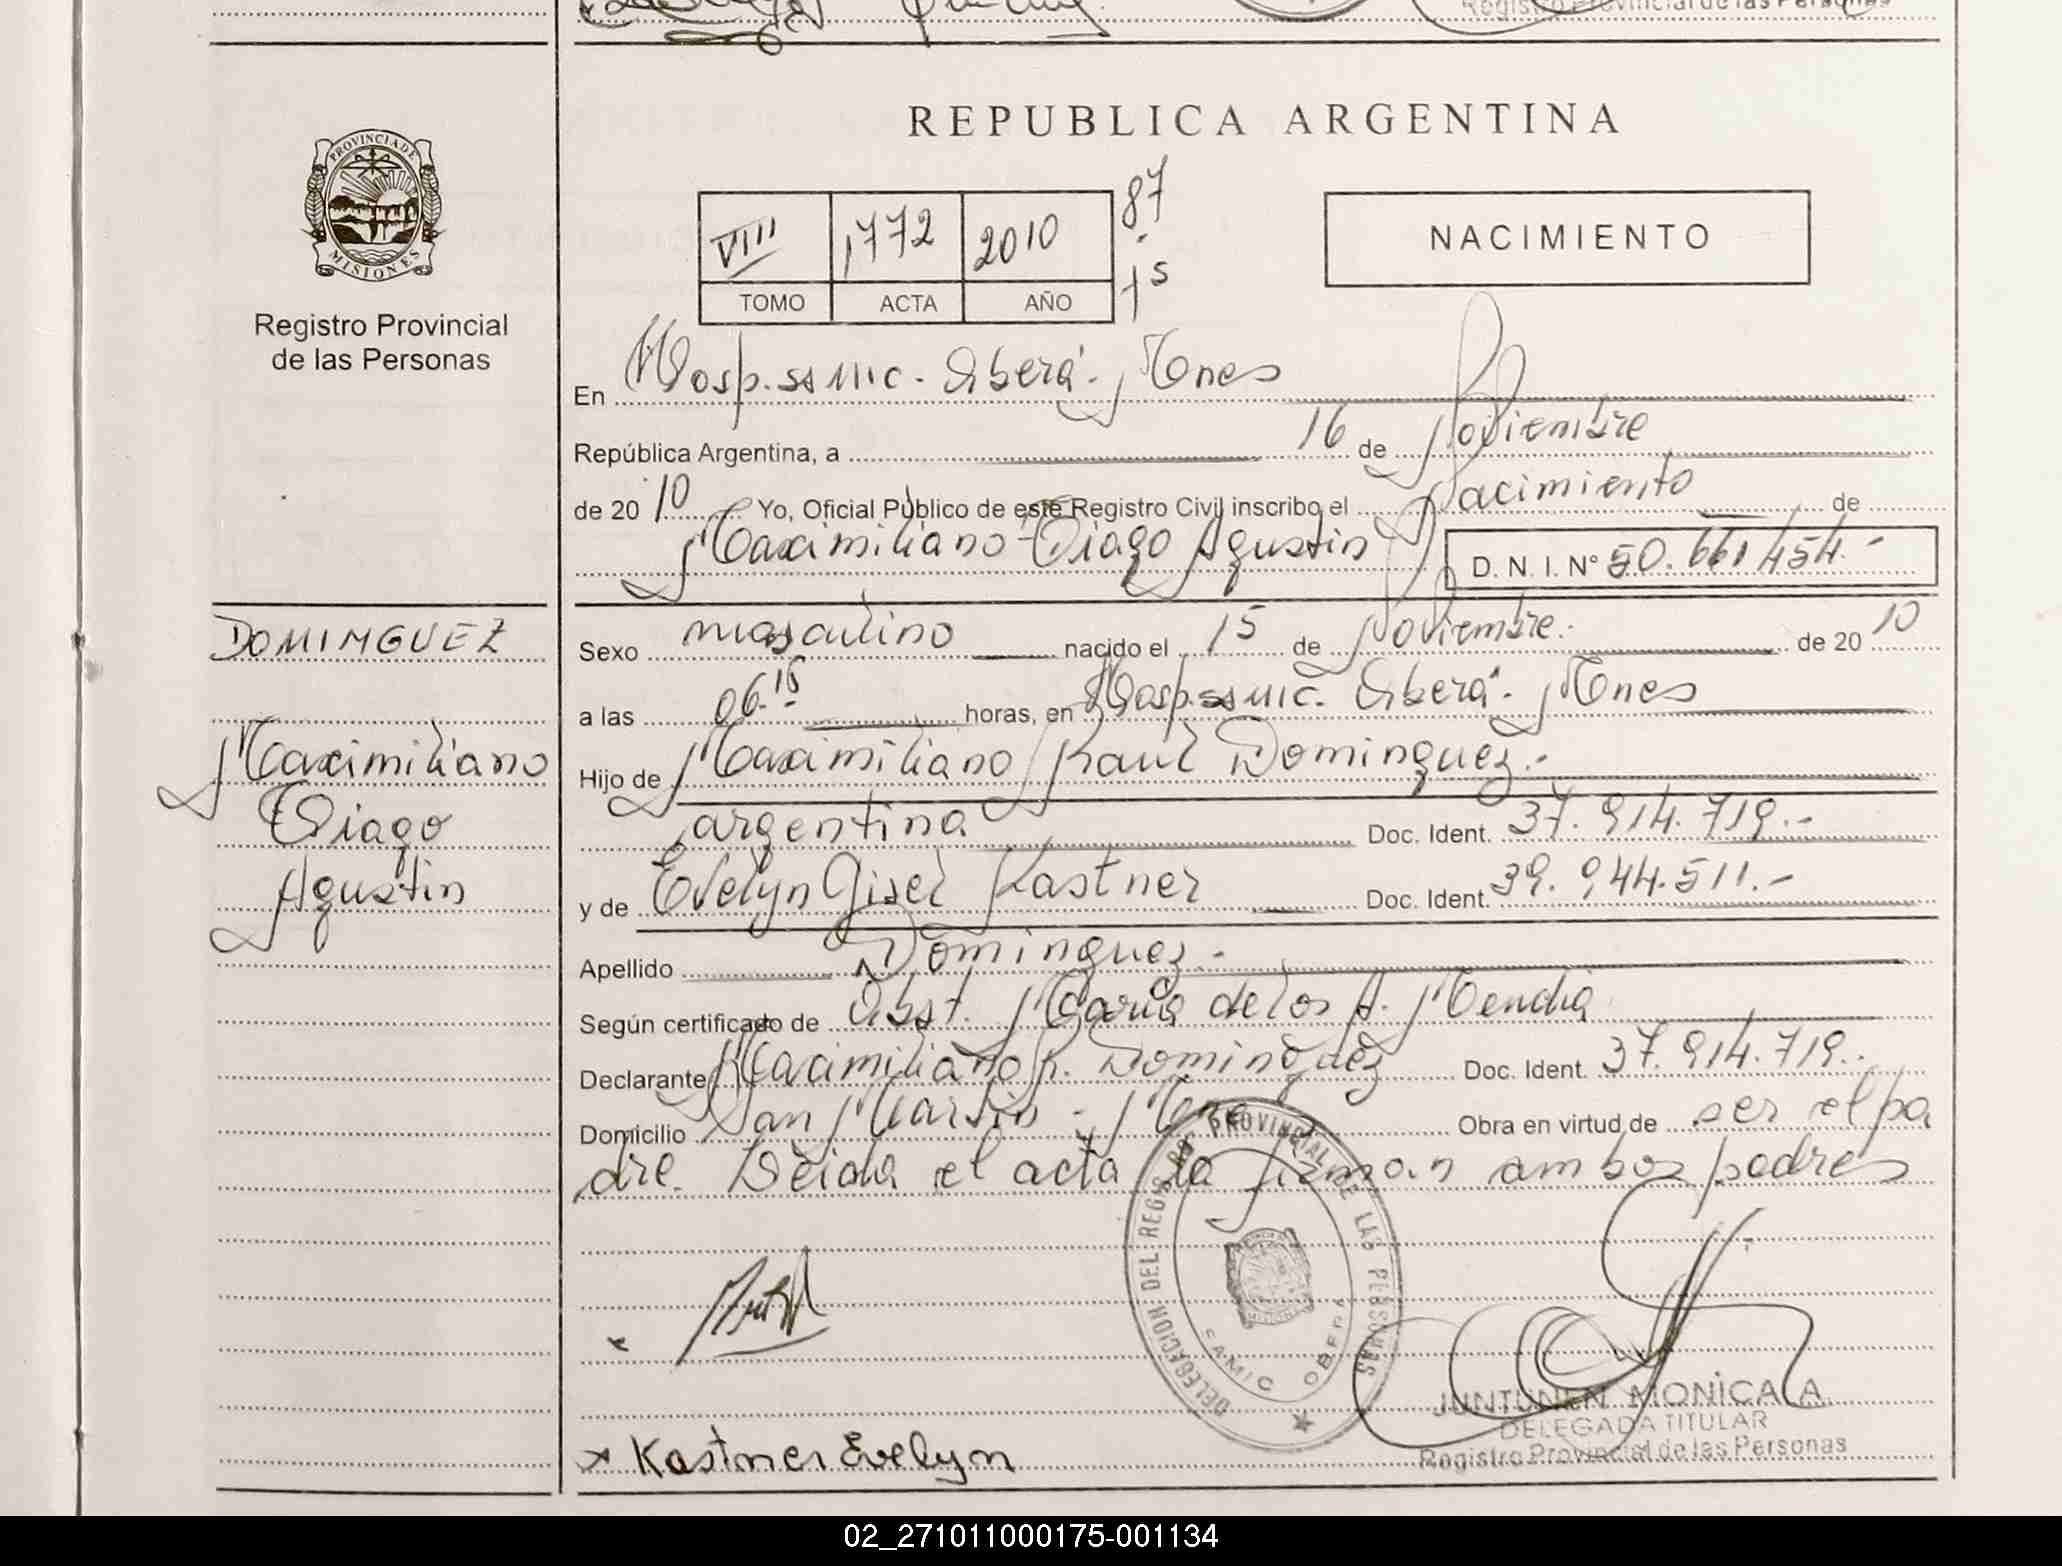 REPUBLICA ARGENTINA
PROVINCIA DE
MISIONES
Registro Provincial
de las Personas
VIII 1772 2010
TOMO ACTA AÑO
87
15
NACIMIENTO
En Hosp. SAMIC. Oberá. Mnes
República Argentina, a 16 de Noviembre
de 20 10 Yo, Oficial Público de este Registro Civil inscribo el Nacimiento de
Maximiliano Tiago Agustin D. N. I. N° 50.661.454.-
DOMINGUEZ
Maximiliano
Tiago
Agustin
Sexo masculino nacido el 15 de Noviembre.- de 20 10
a las 06.15 horas, en Hosp. SAMIC. Oberá. Mnes
Hijo de Maximiliano Raul Dominguez.-
argentina Doc. Ident. 37.914.719.-
y de Evelyn Gisel Kastner Doc. Ident. 39.944.511.-
Apellido Dominguez.-
Según certificado de Obst. Maria de los A. Mendia
Declarante Maximiliano R. Dominguez Doc. Ident. 37.914.719..
Domicilio San Martin - Mnes Obra en virtud de ser el pa
dre. Leida el acta la firman ambos padres
DELEGACION DEL REGISTRO PROVINCIAL DE LAS PERSONAS
SAMIC OBERA
x Kastner Evelyn
JUNTUNEN MONICA A.
DELEGADA TITULAR
Registro Provincial de las Personas
02_271011000175-001134